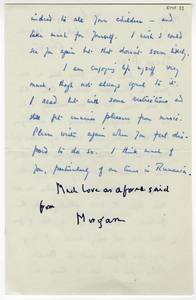 indeed to all your children — and
take much for yourself. I wish I could
see you again but that doesn't seem likely.
I am enjoying life myself very
much, though not always equal to it.
I read but with some restrictions and
still get immense pleasure from music.
Please write again when you feel dis-
posed to do so. I think much of
you, particularly of our times in Rumania.
Much love as aforesaid
from
Morgan